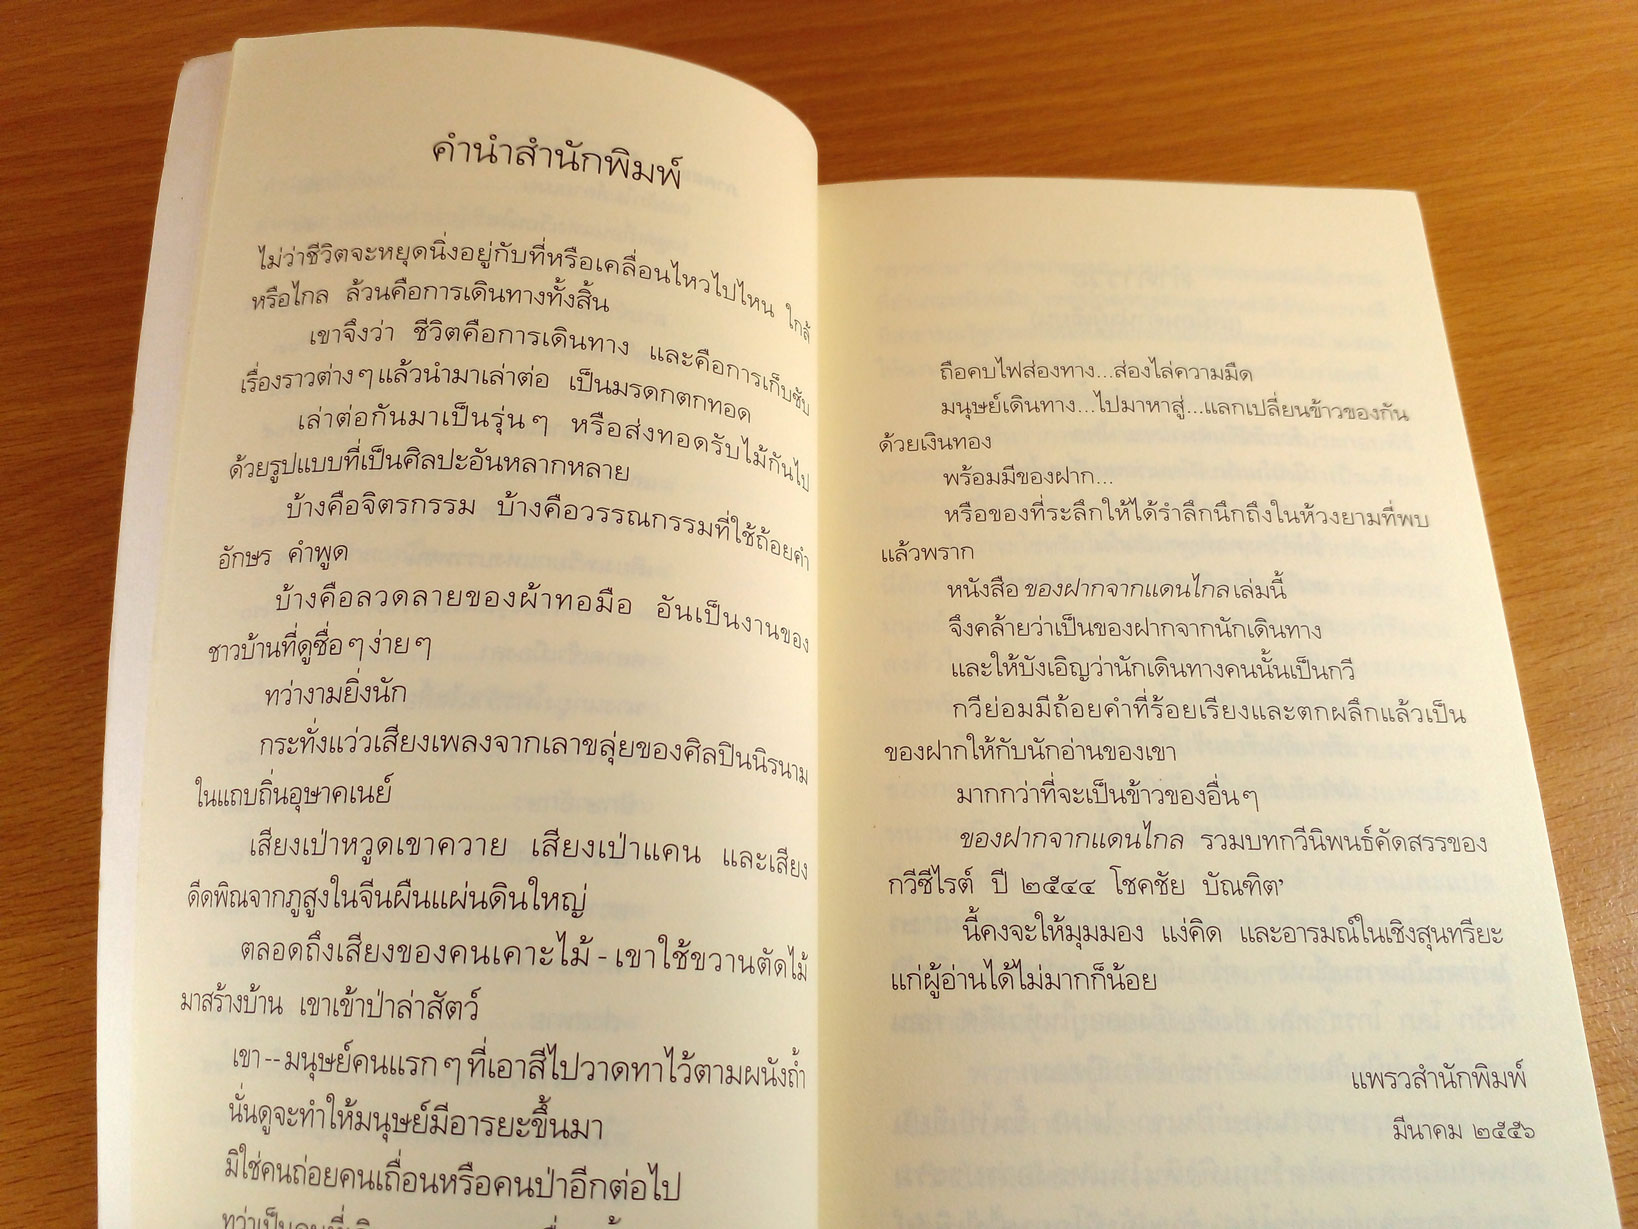 คำนำสำนักพิมพ์
ไม่ว่าชีวิตจะหยุดนิ่งอยู่กับที่หรือเคลื่อนไหวไปไหน ใกล้
หรือไกล ล้วนคือการเดินทางทั้งสิ้น
เขาจึงว่า ชีวิตคือการเดินทาง และคือการเก็บซับ
เรื่องราวต่างๆ แล้วนำมาเล่าต่อ เป็นมรดกตกทอด
เล่าต่อกันมาเป็นรุ่นๆ หรือส่งทอดรับไม้กันไป
ด้วยรูปแบบที่เป็นศิลปะอันหลากหลาย
บ้างคือจิตรกรรม บ้างคือวรรณกรรมที่ใช้ถ้อยคำ
อักษร คำพูด
บ้างคือลวดลายของผ้าทอมือ อันเป็นงานของ
ชาวบ้านที่ดูซื่อๆ ง่ายๆ
ทว่างามยิ่งนัก
กระทั่งแว่วเสียงเพลงจากเลาขลุ่ยของศิลปินนิรนาม
ในแถบถิ่นอุษาคเนย์
เสียงเป่าหวูดเขาควาย เสียงเป่าแคน และเสียง
ดีดพิณจากภูสูงในจีนผืนแผ่นดินใหญ่
ตลอดถึงเสียงของคนเคาะไม้ - เขาใช้ขวานตัดไม้
มาสร้างบ้าน เขาเข้าป่าล่าสัตว์
เขา -- มนุษย์คนแรกๆ ที่เอาสีไปวาดทาไว้ตามผนังถ้ำ
นั่นดูจะทำให้มนุษย์มีอารยะขึ้นมา
มิใช่คนถ่อยคนเถื่อนหรือคนป่าอีกต่อไป
ถือคบไฟส่องทาง...ส่องไล่ความมืด
มนุษย์เดินทาง...ไปมาหาสู่...แลกเปลี่ยนข้าวของกัน
ด้วยเงินทอง
พร้อมมีของฝาก...
หรือของที่ระลึกให้ได้รำลึกนึกถึงในห้วงยามที่พบ
แล้วพราก
หนังสือ ของฝากจากแดนไกล เล่มนี้
จึงคล้ายว่าเป็นของฝากจากนักเดินทาง
และให้บังเอิญว่านักเดินทางคนนั้นเป็นกวี
กวีย่อมมีถ้อยคำที่ร้อยเรียงและตกผลึกแล้วเป็น
ของฝากให้กับนักอ่านของเขา
มากกว่าที่จะเป็นข้าวของอื่นๆ
ของฝากจากแดนไกล รวมบทกวีนิพนธ์คัดสรรของ
กวีซีไรต์ ปี ๒๕๔๔ โชคชัย บัณฑิต’
นี้คงจะให้มุมมอง แง่คิด และอารมณ์ในเชิงสุนทรียะ
แก่ผู้อ่านได้ไม่มากก็น้อย
แพรวสำนักพิมพ์
มีนาคม ๒๕๕๖